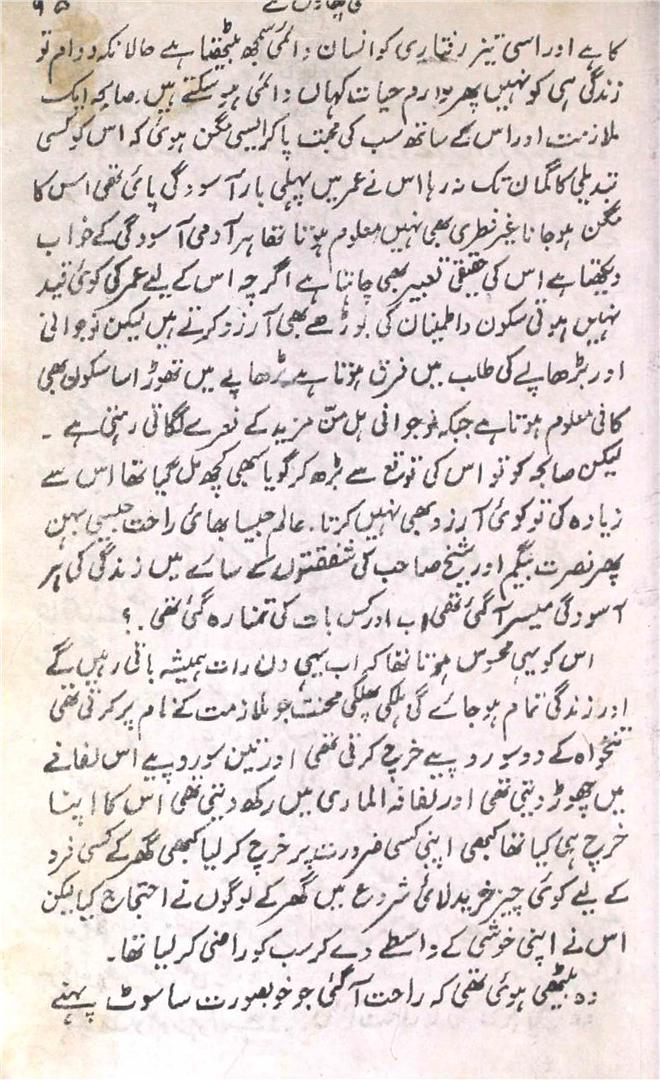 کا ہے اور اسی تیز رفتاری کو انسان دائمی سمجھ بیٹھتا ہے حالانکہ دوام تو
زندگی ہی کو نہیں پھر لوازم حیات کہاں دائمی ہو سکتے ہیں. صالحہ ایک
ملازمت اور اس کے ساتھ سب کی محبت پا کر ایسی مگن ہوئی کہ اس کو کسی
تبدیلی کا گمان تک نہ رہا اس نے عمر میں پہلی بار آسودگی پائی تھی اس کا
مگن ہو جانا غیر فطری بھی نہیں معلوم ہوتا تھا ہر آدمی آسودگی کے خواب
دیکھتا ہے اس کی حقیقی تعبیر بھی چاہتا ہے اگرچہ اس کے لیے عمر کی کوئی قید
نہیں ہوتی سکون و اطمینان کی بوڑھے بھی آرزو کرتے ہیں لیکن نوجوانی
اور بڑھاپے کی طلب میں فرق ہوتا ہے بڑھاپے میں تھوڑا سا سکون بھی
کافی معلوم ہوتا ہے جبکہ نوجوانی ہل من مزید کے نعرے لگاتی رہتی ہے ۔
لیکن صالحہ کو تو اس کی توقع سے بڑھ کر گویا سبھی کچھ مل گیا تھا اس سے
زیادہ کی تو کوئی آرزو بھی نہیں کرتا. عالم جیسا بھائی راحت جیسی بہن
پھر نصرت بیگم اور شیخ صاحب کی شفقتوں کے سائے میں زندگی کی ہر
آسودگی میسر آ گئی تھی اب اور کس بات کی تمنا رہ گئی تھی . ؟
اس کو یہی محسوس ہوتا تھا کہ اب یہی دن رات ہمیشہ باقی رہیں گے
اور زندگی تمام ہو جائے گی ہلکی پھلکی محنت جو ملازمت کے نام پر کرتی تھی
تنخواہ کے دو سو روپیے خرچ کرتی تھی اور تین سو روپیے اس لفافے
میں چھوڑ دیتی تھی اور لفافہ الماری میں رکھ دیتی تھی اس کا اپنا
خرچ ہی کیا تھا کبھی اپنی کسی ضرورت پر خرچ کر لیا کبھی گھر کے کسی فرد
کے لیے کوئی چیز خرید لائی شروع میں گھر کے لوگوں نے احتجاج کیا لیکن
اس نے اپنی خوشی کے واسطے دے کر سب کو راضی کر لیا تھا.
وہ بیٹھی ہوئی تھی کہ راحت آ گئی جو خوبصورت سا سوٹ پہنے